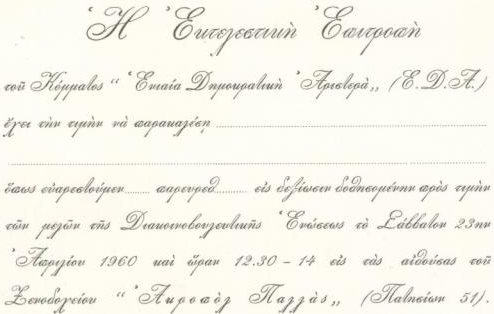 Ἡ Ἐκτελεστικὴ Ἐπιτροπὴ
τοῦ Κόμματος “ Ἑνιαία Δημοκρατικὴ Ἀριστερὰ„ (Ε.Δ.Α.)
ἔχει τὴν τιμὴν νὰ παρακαλέσῃ ........................................
................................................................................
ὅπως εὐαρεστούμεν........ παρευρεθ.......... εἰς δεξίωσιν δοθησομένην πρὸς τιμὴν
τῶν μελῶν τῆς Διακοινοβουλευτικῆς Ἑνώσεως τὸ Σάββατον 23ην
Ἀπριλίου 1960 καὶ ὥραν 12.30 - 14 εἰς τὰς αἰθούσας τοῦ
Ξενοδοχείου “ Ἀκροπὸλ Παλλὰς„ (Πατησίων 51).